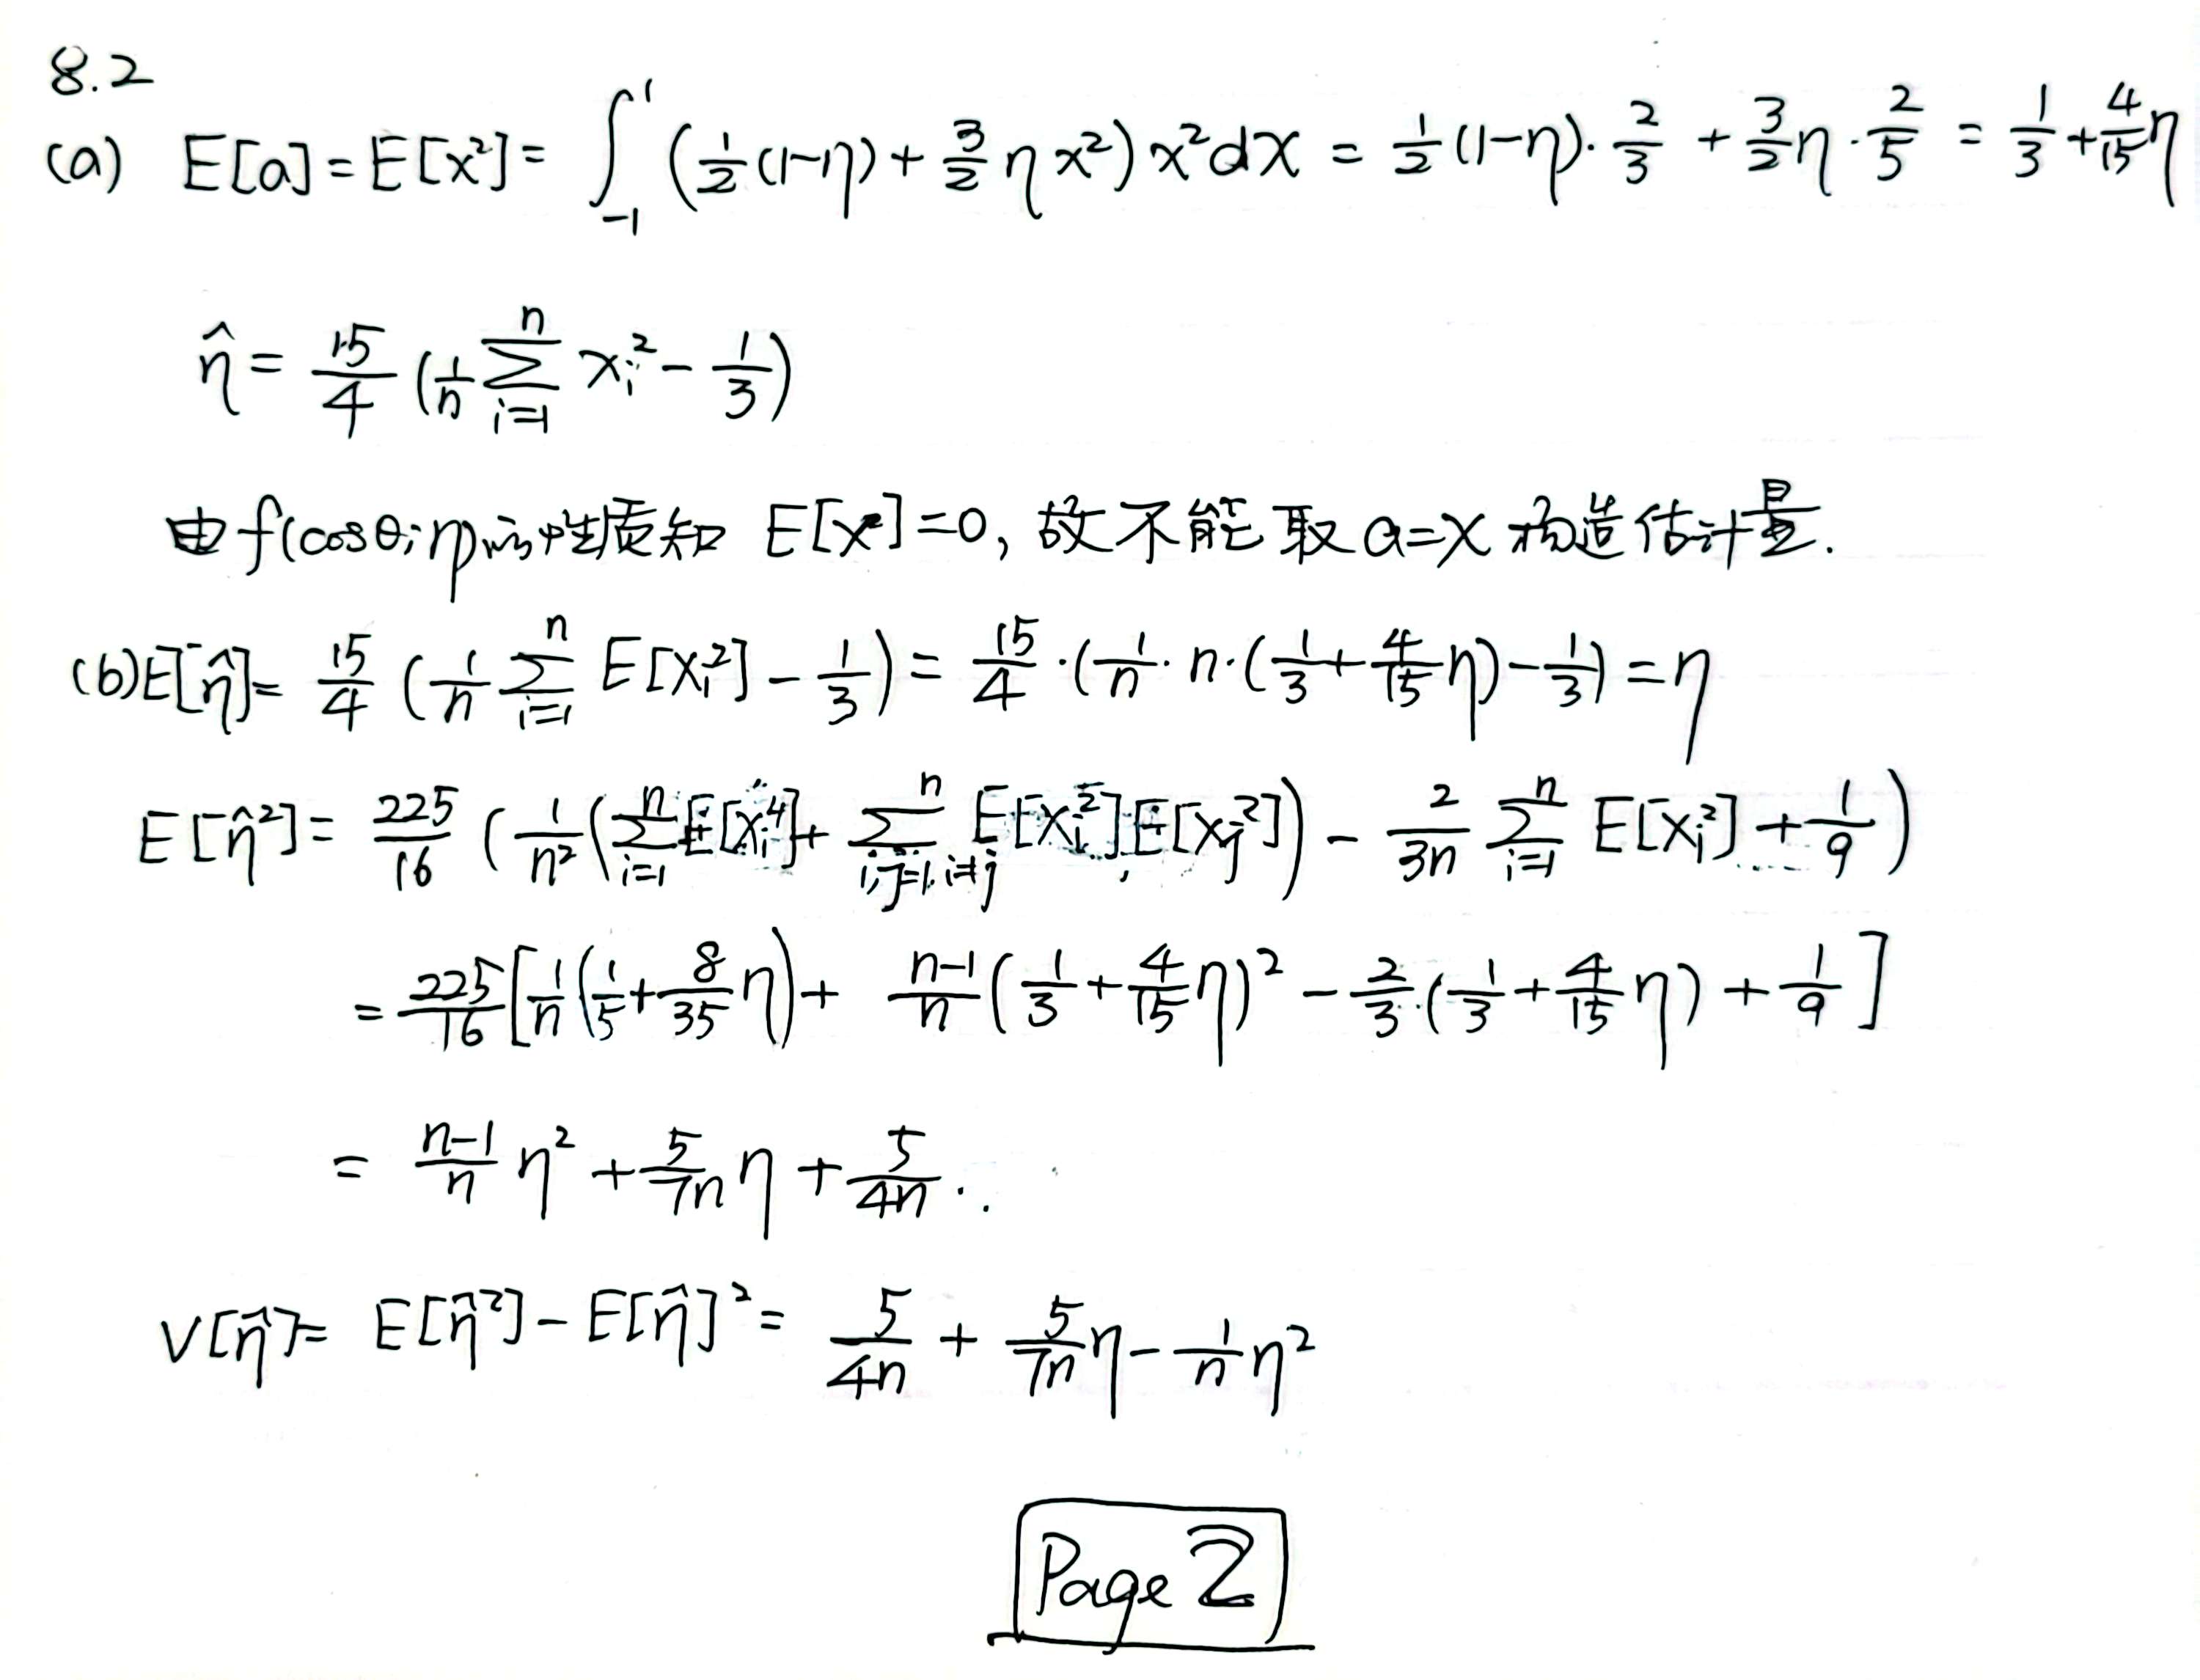 8.2
(a) E[a] = E[x²] = ∫₋₁¹ (½(1-η) + 3/2 η x²) x² dx = ½(1-η)·2/3 + 3/2 η·2/5 = 1/3 + 4/15 η
η̂ = 15/4 (1/n Σᵢ₌₁ⁿ xᵢ² - 1/3)
由 f(cosθ;η) 的性质知 E[x]=0, 故不能取 a=x 构造估计量.
(b) E[η̂] = 15/4 (1/n Σᵢ₌₁ⁿ E[xᵢ²] - 1/3) = 15/4·(1/n·n·(1/3 + 4/15 η) - 1/3) = η
E[η̂²] = 225/16 (1/n² (Σᵢ₌₁ⁿ E[xᵢ⁴] + Σⁿ_{i,j=1,i≠j} E[xᵢ²]E[xⱼ²]) - 2/3n Σᵢ₌₁ⁿ E[xᵢ²] + 1/9)
= 225/16 [1/n (1/5 + 8/35 η) + n-1/n (1/3 + 4/15 η)² - 2/3·(1/3 + 4/15 η) + 1/9]
= n-1/n η² + 5/7n η + 5/4n.
V[η̂] = E[η̂²] - E[η̂]² = 5/4n + 5/7n η - 1/n η²
Page 2